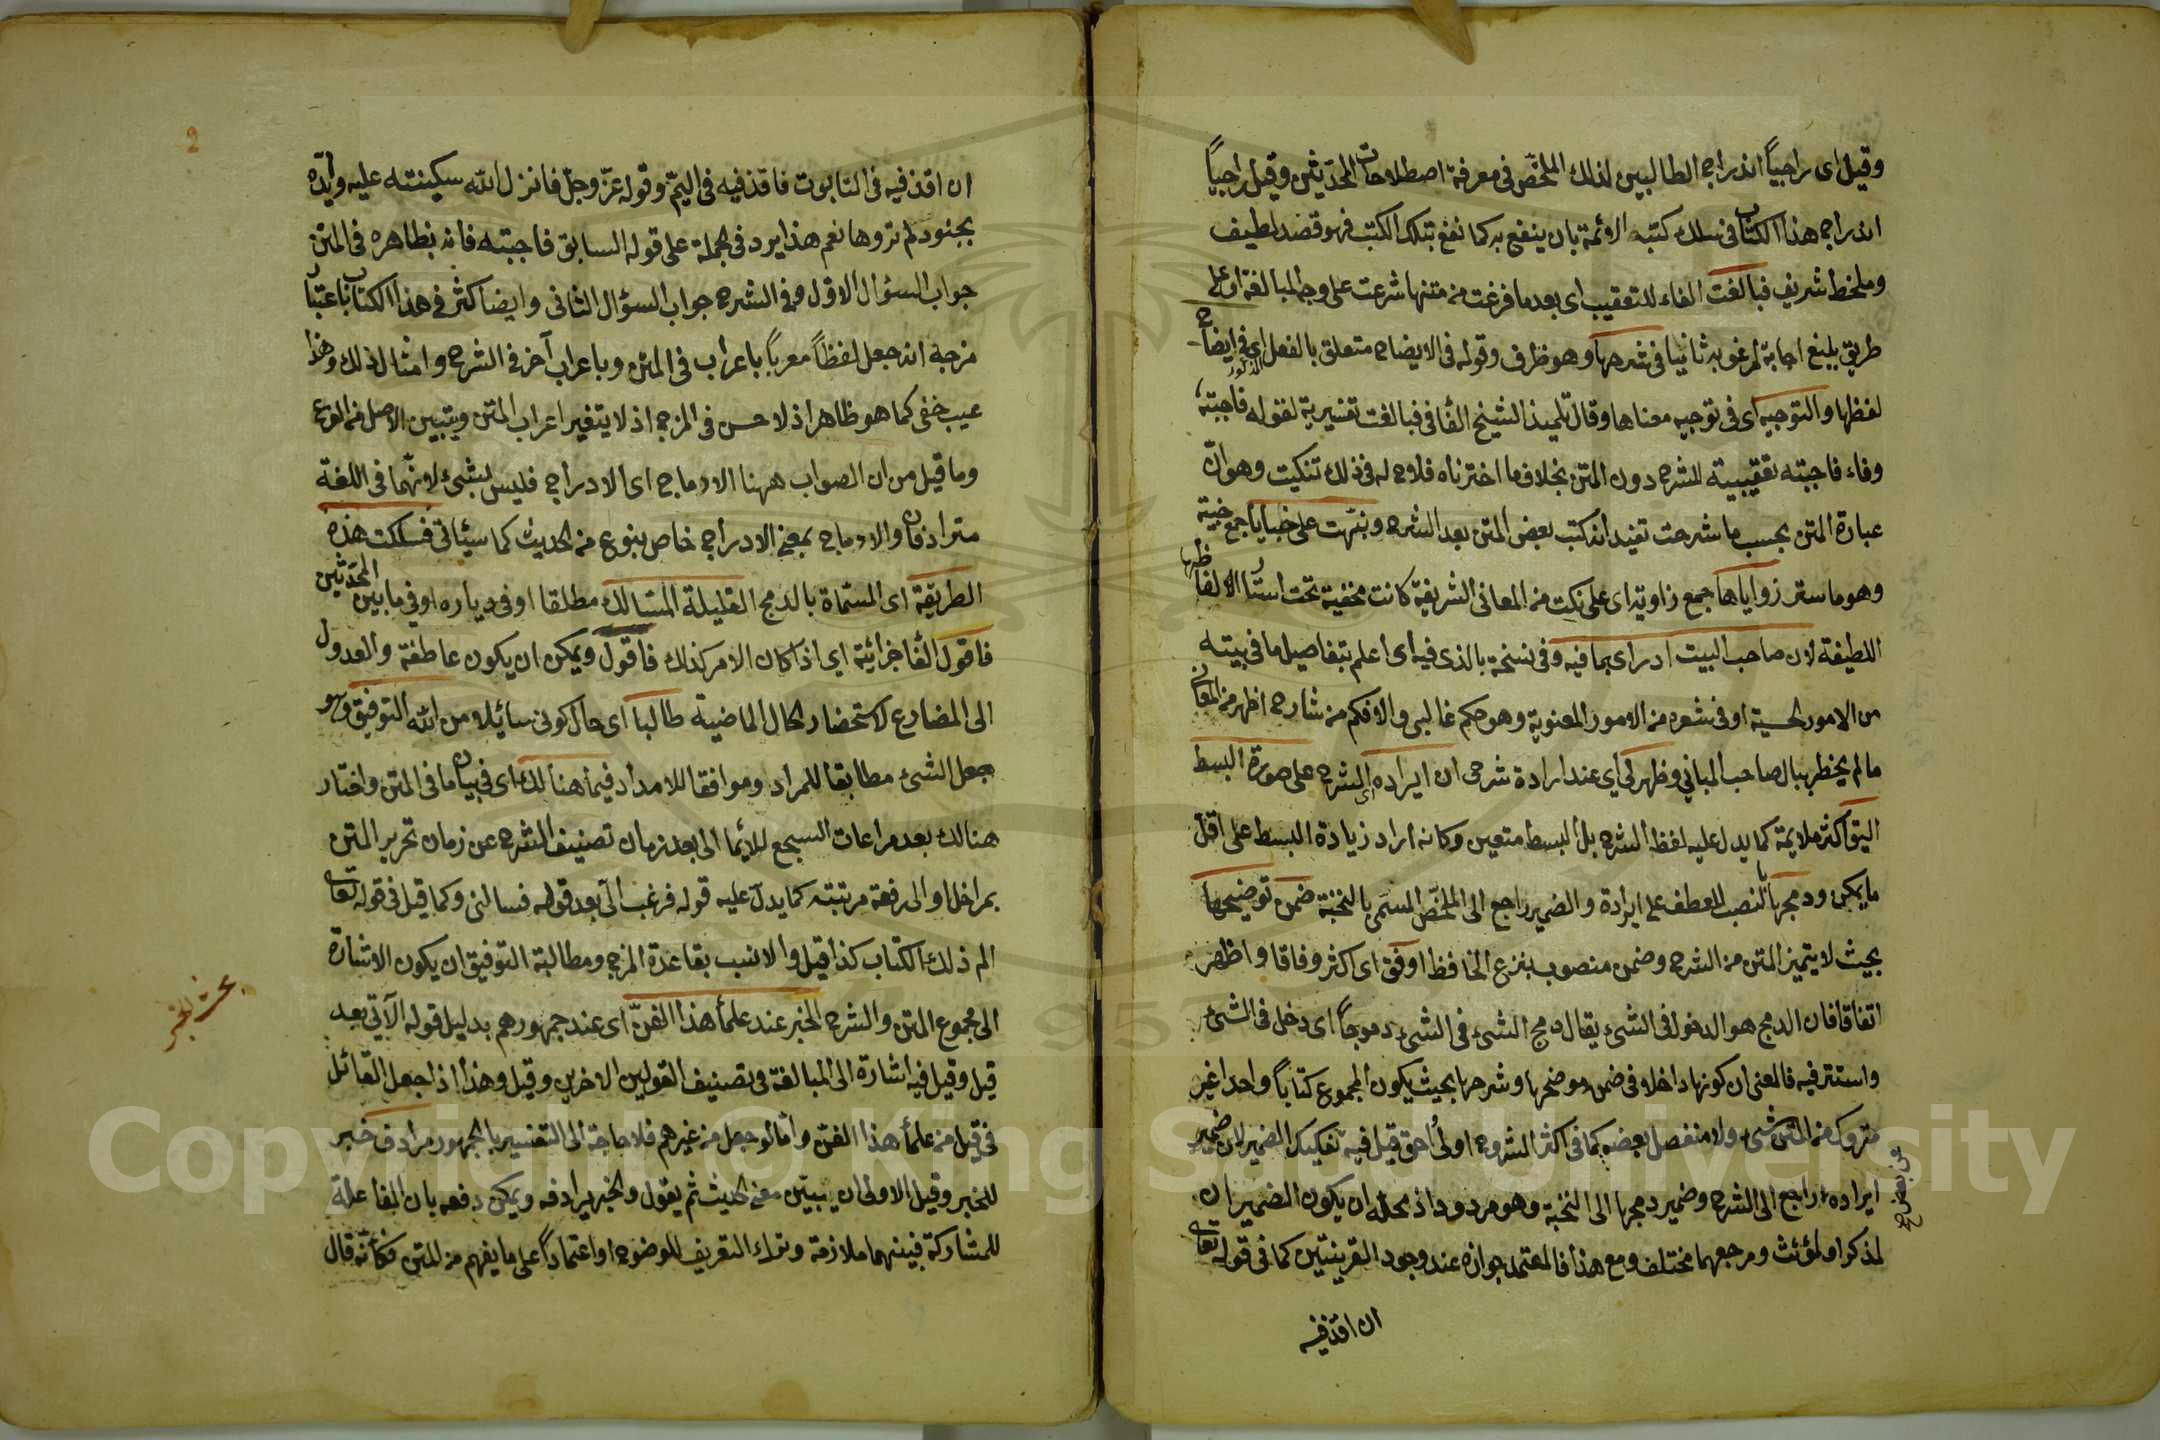 وقيل اى راجياً اندراج الطالبين لذلك الملخص فى معرفة اصطلاحات المحدثين وقيل راجياً
اندراج هذا الكتاب فى سلك كتبه الائمة بان ينتفع به كما نفع بتلك الكتب فهو قصد لطيف
وملحظ شريف فبالغت الفاء للتعقيب اى بعد ما فرغت من متنها شرعت على وجه المبالغة او على
طريق يبلغ اجابة لمرغوبه ثانيا فى شرحها وهو ظرف وقوله فى الايضاح متعلق بالفعل المذكور اى فى ايضاح
لفظها والتوجيه اى فى توجيه معناها وقال تلميذ الشيخ الفا فى فبالغت تفسيرية لقوله فاجبته
وفاء فاجبته تعقيبية للشرح دون المتن بخلاف ما اخترناه فلاح له فى ذلك تنكيت وهو ان
عبارة المتن بحسب ما شرحت تفيد انه كتب بعض المتن بعد الشرح ونبهت على خبايا جمع خبية
وهو ما ستر زواياها جمع زاوية اى على نكت من المعانى الشريفة كانت مخفية تحت استار الالفاظ
اللطيفة لان صاحب البيت ادرى بما فيه وفى نسخة بالذى فيه اى اعلم بتفاصيل ما فى بيته
من الامور الحسية او فى شعره من الامور المعنوية وهو حكم غالبى والا فكم من شارح اظهر من المعانى
ما لم يخطر ببال صاحب المبانى وظهر لى اى عند ارادة شرحى ان ايراده اى الشرح على صورة البسط
اليق اكثر ملايمة كما يدل عليه لفظ الشرح بل البسط متعين وكانه اراد زيادة البسط على اقل
ما يمكن ودمجها بالنصب للعطف على ايراده والضمير راجع الى الملخص المسمى بالنخبة ضمن توضيحها
بحيث لا يتميز المتن من الشرح وضمن منصوب بنزع الخافظ اوفق اى اكثر وفاقا واظهر
اتفاقا فان الدمج هو الدخول فى الشىء يقال دمج الشىء فى الشىء دموجاً اى دخل فى الشىء
واستتر فيه فالمعنى ان كونها داخلا فى ضمن موضحها وشرحها بحيث يكون المجموع كتاباً واحدا غير
متروك من المتن شىء ولا منفصل بعضه كما فى اكثر الشروح اولى احق قيل فيه تفكيك الضمير لان ضمير
ايراده راجع الى الشرح وضمير دمجها الى النخبة وهو مردود اذ محله ان يكون الضميران
لمذكر او لمؤنث ومرجعهما مختلف ومع هذا فالمعتمد جوازه عند وجود القرينتين كما فى قوله تعالى
ان اقذفيه
ان اقذفيه فى التابوت فاقذفيه فى اليم وقوله عز وجل فانزل الله سكينته عليه وايده
بجنود لم تروها نعم هذا يرد فى الجملة على قوله السابق فاجبته فانه بظاهره فى المتن
جواب السؤال الاول وفى الشرح جواب السؤال الثانى وايضا كثر فى هذا الكتاب باعتبار
مزجه انه جعل لفظاً معرباً باعراب فى المتن وباعراب آخر فى الشرح وامثال ذلك وهذا
عيب خفى كما هو ظاهر اذ لا حسن فى المزج اذ لا يتغير اعراب المتن ويتبين الاصل من الفرع
وما قيل من ان الصواب ههنا الادماج اى الادراج فليس بشىء لانهما فى اللغة
مترادفان والادماج بمعنى الادراج خاص بنوع من الحديث كما سيأتى فسلكت هذه
الطريقة اى المسماة بالدمج القليلة المسالك مطلقا او فى دياره او فى ما بين المحدثين
فاقول الفا جزائية اى اذا كان الامر كذلك فاقول ويمكن ان يكون عاطفة والعدول
الى المضارع لاستحضار الحال الماضية طالبا اى حال كونى سائلا من الله التوفيق وهو
جعل الشىء مطابقا للمراد وموافقا للامداد فيما هنالك اى فى بيان ما فى المتن واختار
هنالك بعد مراعات السجع للايما الى بعد زمان تصنيف الشرح عن زمان تحرير المتن
بمراحل او الى رفعة مرتبته كما يدل عليه قوله فرغب الى بعد قوله فسالنى وكما قيل فى قوله تعالى
الم ذلك الكتاب كذا قيل والانسب بقاعدة المزج ومطالبة التوفيق ان يكون الاشارة
الى مجموع المتن والشرح الخبر عند علماء هذا الفن اى عند جمهورهم بدليل قوله الآتى بعد
قيل وقيل فيه اشارة الى المبالغة فى تضعيف القولين الاخرين وقيل وهذا اذا جعل القائل
فى قيل من علماء هذا الفن واما لو جعل من غيرهم فلا حاجة الى التفسير بالجمهور مرادف خبر
للخبر وقيل الاولى ان يبين معنى الحديث ثم يقول والخبر يرادفه ويمكن دفعه بان المفاعلة
للمشاركة فبينهما ملازمة وترك التعريف للوضوح او اعتماداً على ما يفهم من المتن فكأنه قال